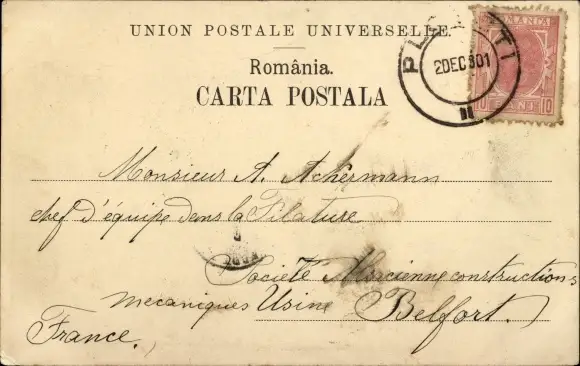 UNION POSTALE UNIVERSELLE.
România.
CARTA POSTALA
2DEC 901
II
ROMANIA
10 10
Monsieur A. Ackermann
chef d'équipe dans la Filature
Societé Alsacienne constructions
mecaniques Usine Belfort.
France.